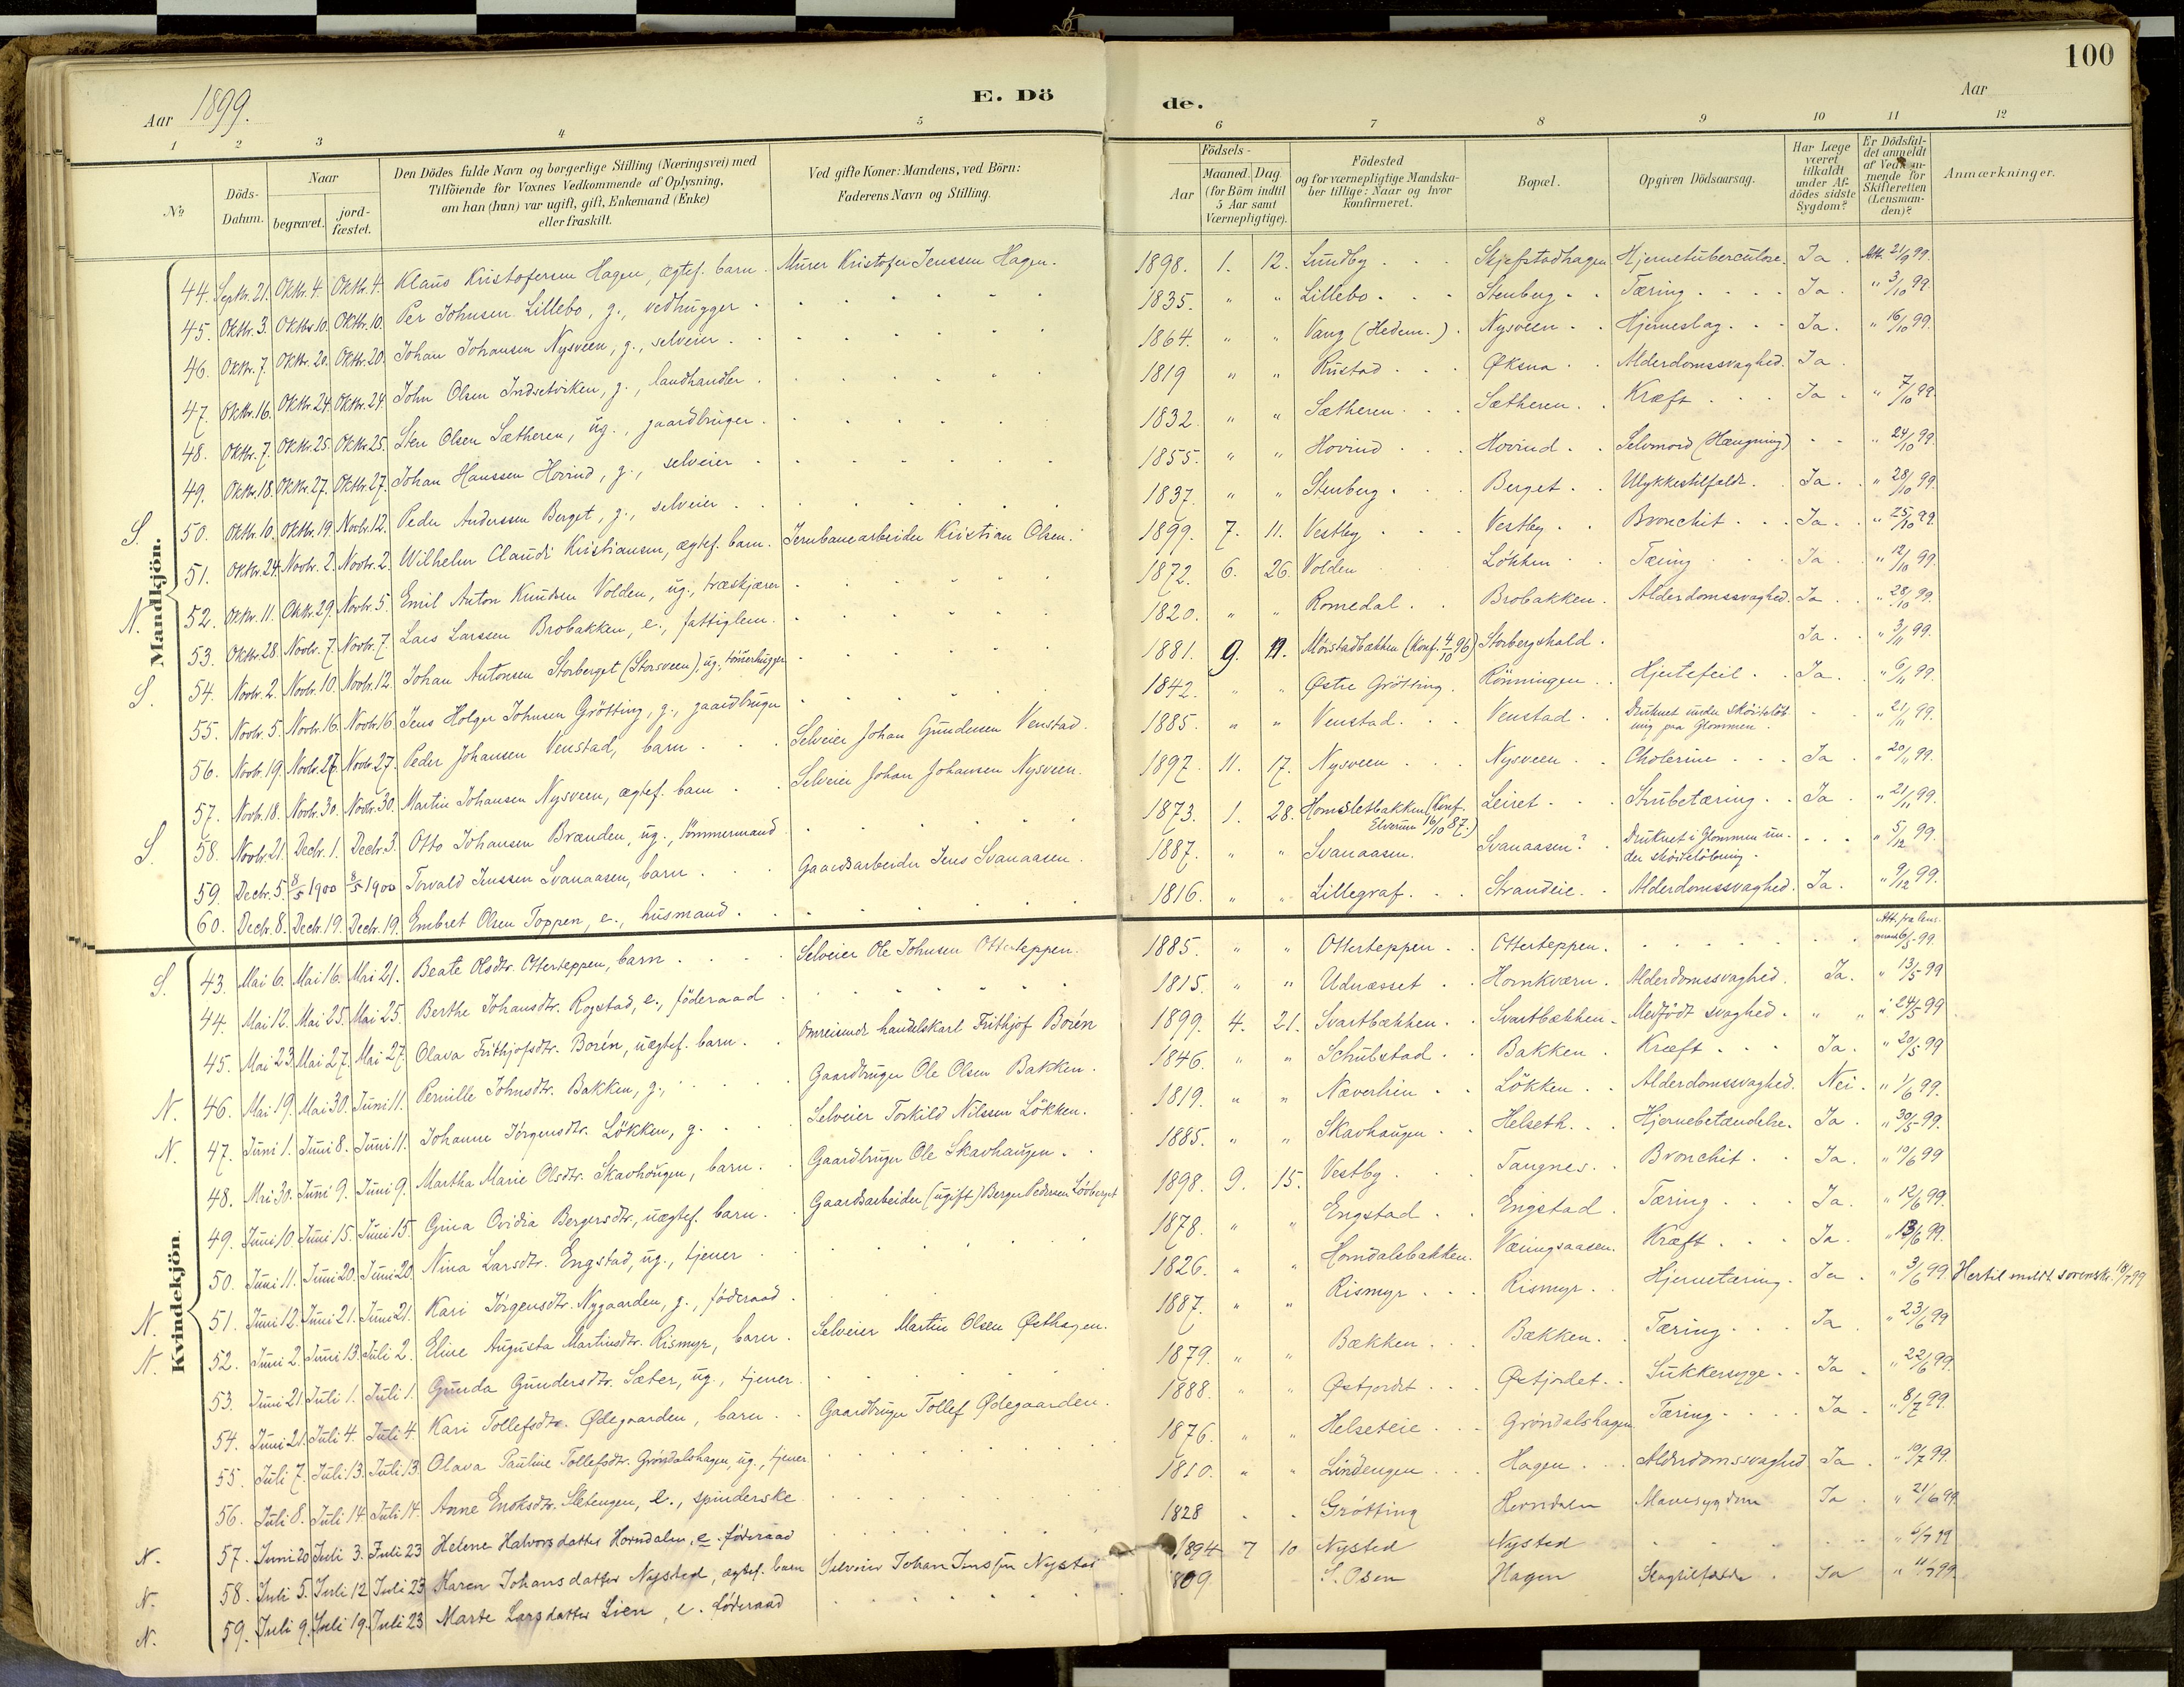 100
Aar 1899. E. Dö de. Aar
1 2 3 4 5 6 7 8 9 10 11 12
№ Döds-Datum. Naar begravet. jord-fæstet. Den Dödes fulde Navn og borgerlige Stilling (Næringsvei) med Tilföiende for Voxnes Vedkommende af Oplysning, om han (hun) var ugift, gift, Enkemand (Enke) eller fraskilt. Ved gifte Koner: Mandens, ved Börn: Faderens Navn og Stilling. Födsels- Aar Maaned. Dag (for Börn indtil 5 Aar samt Værnepligtige). Födested og for værnepligtige Mandskaber tillige: Naar og hvor konfirmeret. Bopæl. Opgiven Dödsaarsag. Har Læge været tilkaldt under Afdödes sidste Sygdom? Er Dödsfaldet anmeldt af Vedkommende for Skifteretten (Lensmanden)? Anmærkninger.
Mandkjön.
44. Septr. 21. Oktbr. 4. Oktbr. 4. Klaus Kristofersen Hagen, ægtef. barn. Murer Kristofer Jenssen Hagen. 1898. 1. 12. Lundby Skjefstadhagen Hjernetuberculose. Ja. Att. 21/9 99.
45. Oktbr. 3. Oktbr. 10. Oktbr. 10. Per Johnsen Lillebo, g., vedhugger 1835. " " Lillebo Stenberg Tæring Ja " 3/10 99.
46. Oktbr. 7. Oktbr. 20. Oktbr. 20. Johan Johansen Nysveen, g., selveier 1864. " " Vang (Hedem.) Nysveen Hjerneslag Ja. " 16/10 99.
47. Oktbr. 16. Oktbr. 24. Oktbr. 24. John Olsen Indsetviken, g., landhandler 1819 " " Rustad Øksna Alderdomssvaghed. Ja.
48. Oktbr. 7. Oktbr. 25. Oktbr. 25. Sten Olsen Sætheren, ug., gaardbruger 1832. " " Sætheren Sætheren Kræft Ja " 7/10 99.
49. Oktbr. 18. Oktbr. 27. Oktbr. 27. Johan Hanssen Hovind, g., selveier 1855. " " Hovind Hovind Selvmord (Hængning) " 24/10 99.
S. 50. Oktbr. 10. Oktbr. 19. Novbr. 12. Peder Anderssen Berget, g., selveier 1837. " " Stenberg Berget Ulykkestilfælde Ja. " 28/10 99.
51. Oktbr. 24. Novbr. 2. Novbr. 2. Wilhelm Claudi Kristiansen, ægtef. barn. Jernbanearbeider Kristian Olsen. 1899. 7. 11. Vestby Vestby Bronchit Ja. " 25/10 99.
N. 52. Oktbr. 11. Oktbr. 29. Novbr. 5. Emil Anton Knudsen Volden, ug., træskjærer 1872. 6. 26. Volden Løkken Tæring Ja " 12/10 99.
53. Oktbr. 28. Novbr. 7. Novbr. 7. Lars Larssen Brobakken, e., fattiglem. 1820. " " Romedal Brobakken. Alderdomssvaghed. Ja " 28/10 99.
S. 54. Novbr. 2. Novbr. 10. Novbr. 12. Johan Antonsen Storberget (Storsveen), ug., tömerhugger 1881. 9. 11. Mörstadbækken (Konf. 4/10 96) Storbergshald. Ja. " 3/11 99.
55. Novbr. 5. Novbr. 16. Novbr. 16. Jens Holger Johnsen Grötting, g., gaardbruger 1842. " " Østre Grötting. Rönningen Hjertefeil Ja. " 6/11 99.
56. Novbr. 19. Novbr. 27. Novbr. 27. Peder Johansen Venstad, barn Selveier Johan Gundersen Venstad. 1885. " " Venstad Venstad Druknet under sköitelöbning paa Glommen. " 21/11 99.
57. Novbr. 18. Novbr. 30. Novbr. 30. Martin Johansen Nysveen, ægtef. barn Selveier Johan Johansen Nysveen. 1897. 11. 17. Nysveen Nysveen Cholerine Ja " 20/11 99.
S. 58. Novbr. 21. Decbr. 1. Decbr. 3. Otto Johansen Brænden, ug., tömmermand 1873. 1. 28. Homsletbakken (Konf. Elverum 16/10 87.) Leiret Strubetæring Ja " 21/11 99.
59. Decbr. 5. 8/5 1900 8/5 1900 Torvald Jenssen Svanaasen, barn Gaardsarbeider Jens Svanaasen. 1887. " " Svanaasen. Svanaasen? Druknet i Glommen under sköitelöbning. " 5/12 99.
60. Decbr. 8. Decbr. 19. Decbr. 19. Embret Olsen Toppen, e., husmand 1816. " " Lillegraf Strandeie Alderdomssvaghed. Ja. " 9/12 99.
Kvindekjön.
S. 43. Mai 6. Mai 16. Mai 21. Beate Olsdtr. Otterteppen, barn Selveier Ole Johnsen Otterteppen. 1885. " " Otterteppen Otterteppen. Att. fra lensmand 6/5 99.
44. Mai 12. Mai 25. Mai 25. Berthe Johansdtr. Rogstad, e., föderaad 1815. " " Udnæsset Hornkværn. Alderdomssvaghed. Ja. " 13/5 99
45. Mai 23. Mai 27. Mai 27. Olava Frithjofsdtr. Borén, uægtef. barn. Omreisende handelskarl Frithjof Borén 1899. 4. 21. Svartbækken Svartbækken Medfödt svaghed. " " " 24/5 99
N. 46. Mai 19. Mai 30. Juni 11. Pernille Johnsdtr. Bakken, g., Gaardbruger Ole Olsen Bakken. 1846. " " Schulstad Bakken Kræft Ja. " 20/5 99
N. 47. Juni 1. Juni 8. Juni 11. Johanne Jörgensdtr. Løkken, g. Selveier Torkild Nilssen Løkken. 1819. " " Næverlien Løkken Alderdomssvaghed. Nei. " 1/6 99.
48. Mai 30. Juni 9. Juni 9. Martha Marie Olsdtr. Skavhaugen, barn. Gaardbruger Ole Skavhaugen. 1885. " " Skavhaugen Helseth Hjernebetændelse. Ja " 30/5 99.
49. Juni 10. Juni 15. Juni 15. Gina Ovidia Bergersdtr., uægtef. barn. Gaardsarbeider (ugift) Berger Pedersen Lövberget 1898. 9. 15. Vestby Tangnes Bronchit Ja. " 10/6 99
50. Juni 11. Juni 20. Juni 20. Nina Larsdtr. Engstad, ug., tjener 1878. " " Engstad Engstad Tæring Ja. " 12/6 99.
N. 51. Juni 12. Juni 21. Juni 21. Kari Jörgensdtr. Nygaarden, g., föderaad. 1826. " " Horndalsbakken. Væringsaasen. Kræft Ja. " 13/6 99.
N. 52. Juni 2. Juni 13. Juli 2. Eline Augusta Martinsdtr. Rismyr, barn. Selveier Martin Olsen Østhagen. 1887. " " Rismyr Rismyr Hjernetæring. Ja " 3/6 99. Hertil meldt sorenskr. 18/7 99
53. Juni 21. Juli 1. Juli 1. Gunda Gundersdtr. Sæter, ug., tjener. 1879. " " Bækken Bækken. Tæring Ja " 23/6 99
54. Juni 21. Juli 4. Juli 4. Kari Tollefsdtr. Ødegaarden, barn Gaardbruger Tollef Ødegaarden. 1888. " " Østjordet Østjordet. Sukkersyge Ja " 22/6 99.
55. Juli 7. Juli 13. Juli 13. Olava Pauline Tollefsdtr. Gröndalshagen, ug., tjener 1876. " " Helseteie Gröndalshagen Tæring Ja " 8/7 99.
56. Juli 8. Juli 14. Juli 14. Anne Enoksdtr. Sletengen, e., spinderske 1810. " " Lindengen Hagen Alderdomssvaghed Ja " 10/7 99.
N. 57. Juni 20 Juli 3. Juli 23 Helene Halvorsdatter Horndalen, e. föderaad 1828 Grötting Horndalen Mavesygdom Ja " 21/6 99
N. 58. Juli 5. Juli 12 Juli 23 Karen Johansdatter Nysted, ægtef. barn Selveier Johan Jenssen Nystad 1894 7 10 Nysted Nysted " 6/7 99
N. 59. Juli 9. Juli 19. Juli 23 Marte Larsdatter Lien, e. föderaad 1809 S. Osen Hagen Slagtilfælde Ja " 11/7 99